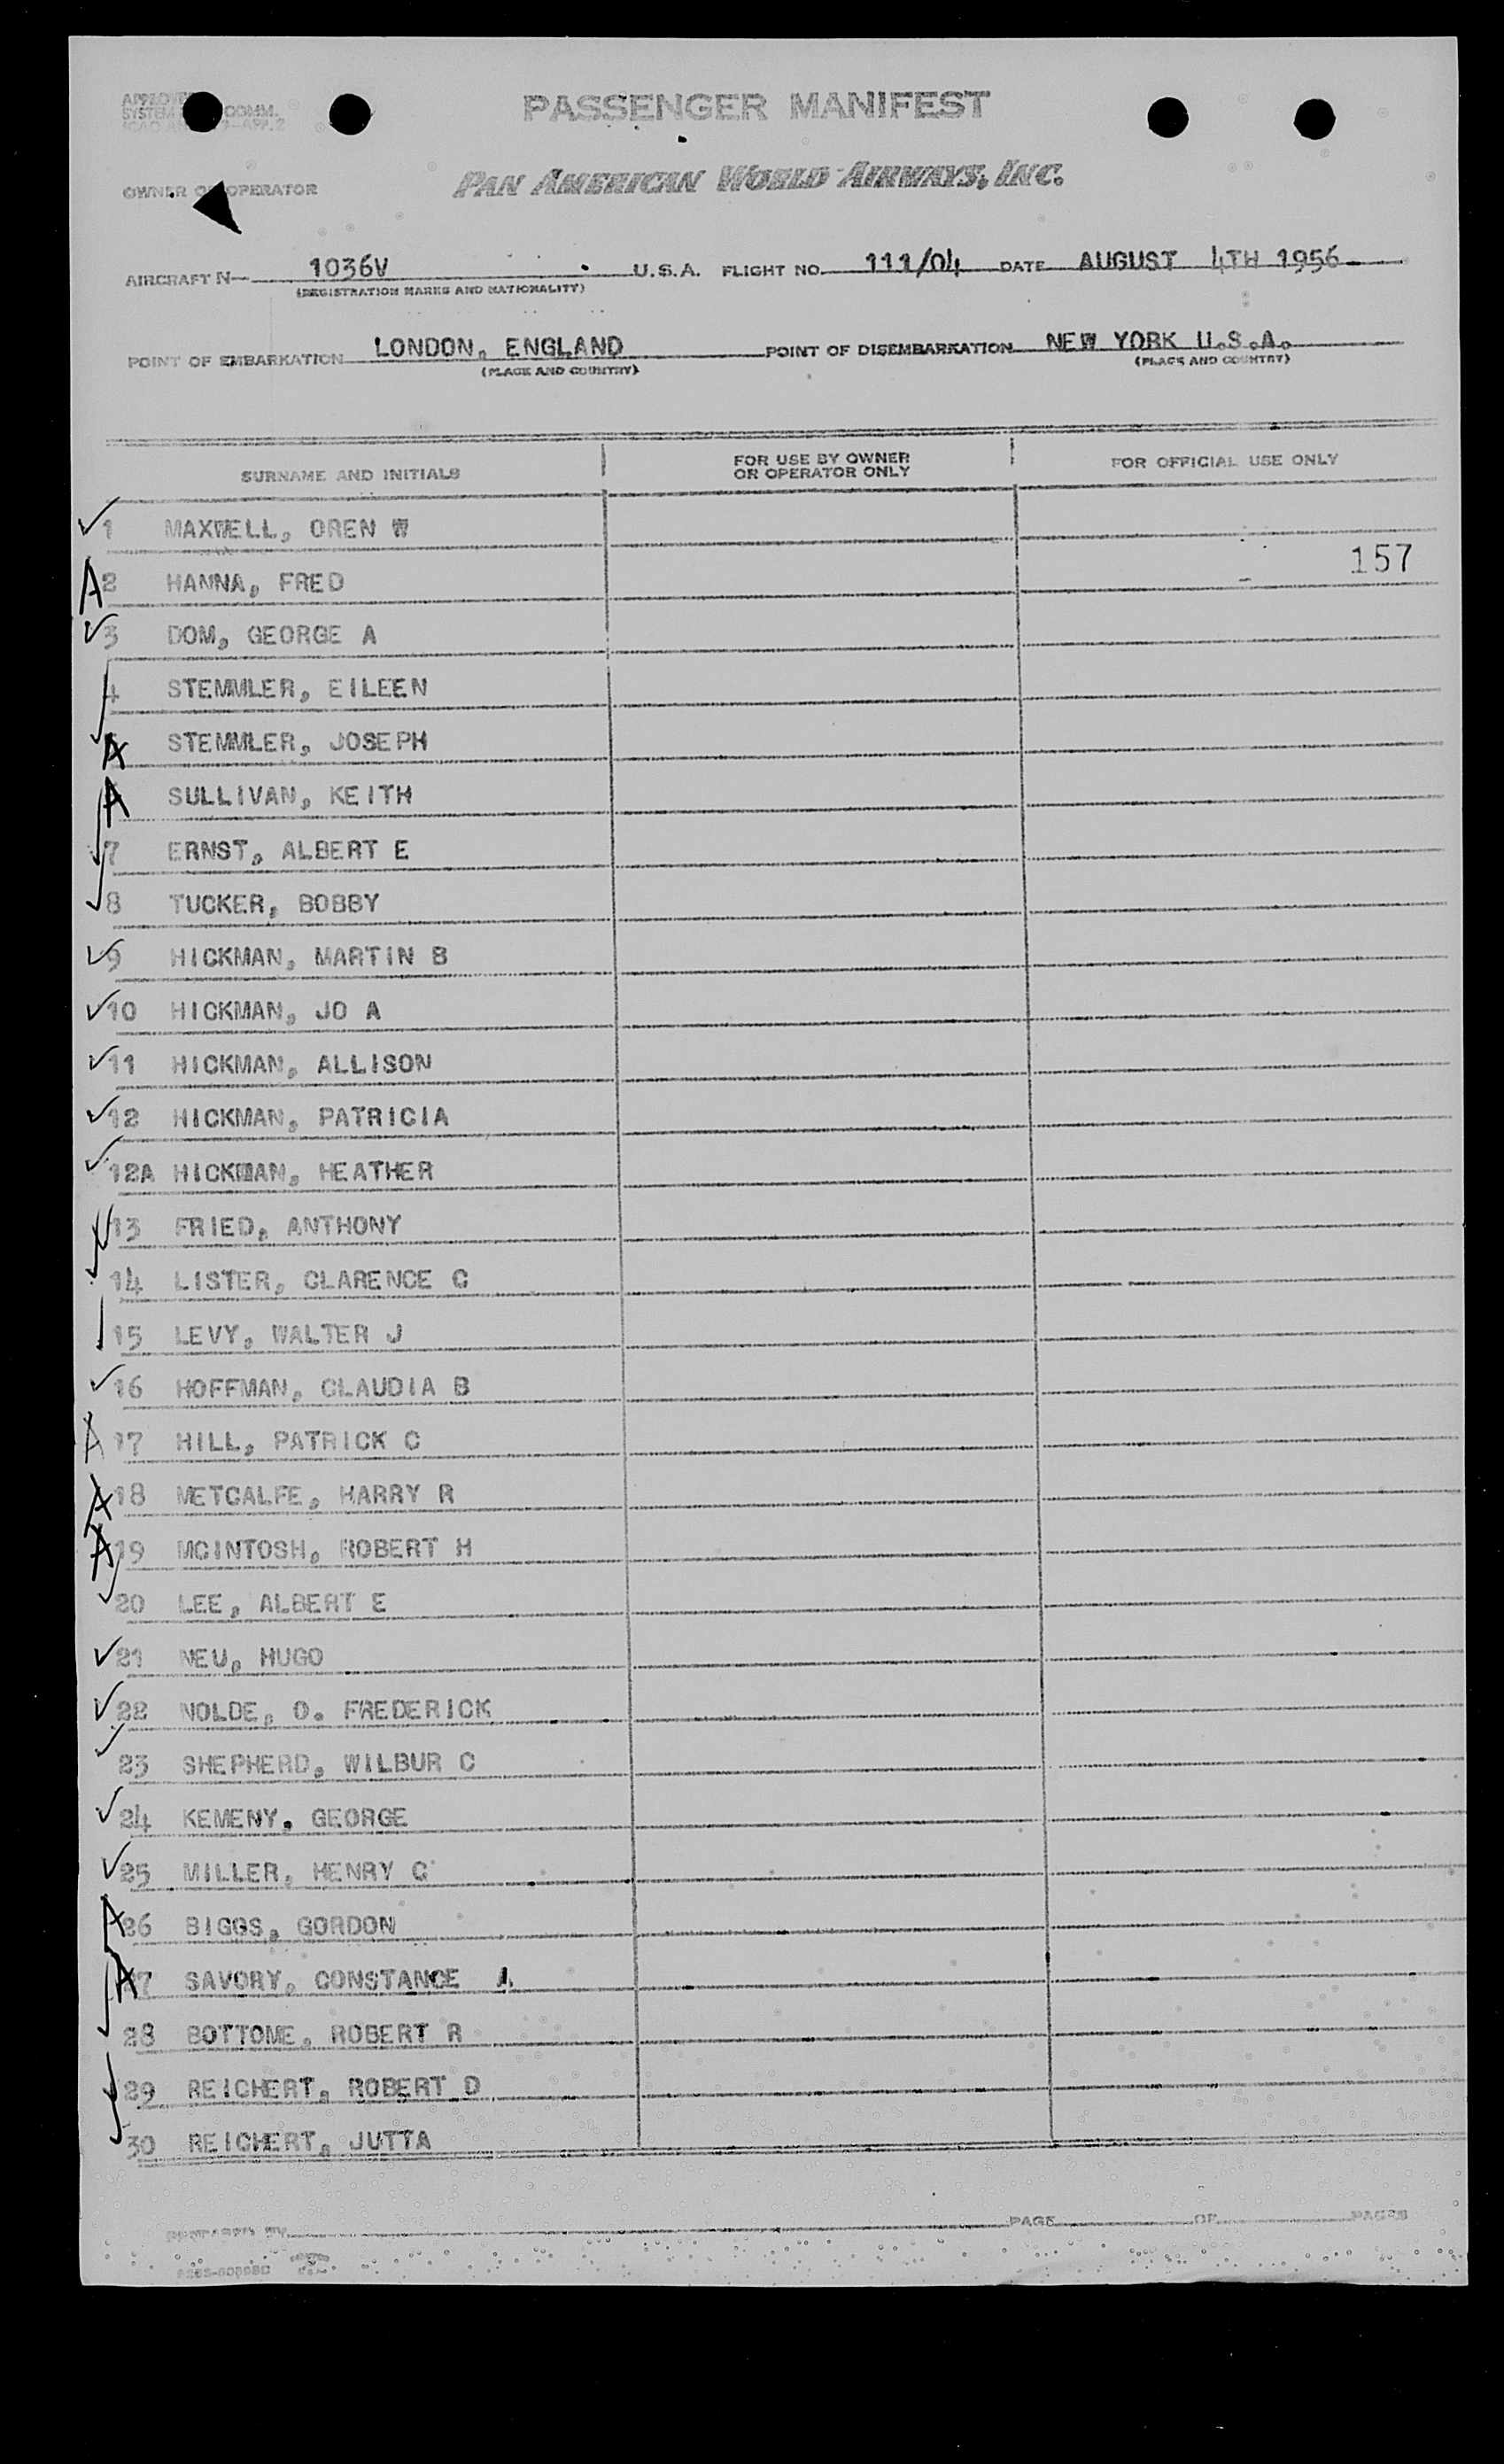 PASSENGER MANIFEST
OWNER OR OPERATOR PAN AMERICAN WORLD AIRWAYS, INC.
AIRCRAFT N 1036V U.S.A. FLIGHT NO. 111/04 DATE AUGUST 4TH 1956
(REGISTRATION MARKS AND NATIONALITY)
POINT OF EMBARKATION LONDON, ENGLAND POINT OF DISEMBARKATION NEW YORK U.S.A.
(PLACE AND COUNTRY) (PLACE AND COUNTRY)
SURNAME AND INITIALS FOR USE BY OWNER OR OPERATOR ONLY FOR OFFICIAL USE ONLY
✓ 1 MAXWELL, OREN W
157
A 2 HANNA, FRED
✓ 3 DOM, GEORGE A
✓ 4 STEMMLER, EILEEN
A STEMMLER, JOSEPH
A SULLIVAN, KEITH
✓ 7 ERNST, ALBERT E
✓ 8 TUCKER, BOBBY
✓ 9 HICKMAN, MARTIN B
✓ 10 HICKMAN, JO A
✓ 11 HICKMAN, ALLISON
✓ 12 HICKMAN, PATRICIA
✓ 12A HICKMAN, HEATHER
✓ 13 FRIED, ANTHONY
✓ 14 LISTER, CLARENCE C
✓ 15 LEVY, WALTER J
✓ 16 HOFFMAN, CLAUDIA B
A 17 HILL, PATRICK C
A 18 METCALFE, HARRY R
A 19 MCINTOSH, ROBERT H
✓ 20 LEE, ALBERT E
✓ 21 NEU, HUGO
✓ 22 NOLDE, O. FREDERICK
✓ 23 SHEPHERD, WILBUR C
✓ 24 KEMENY, GEORGE
✓ 25 MILLER, HENRY G
A 26 BIGGS, GORDON
A 27 SAVORY, CONSTANCE
✓ 28 BOTTOME, ROBERT R
✓ 29 REICHERT, ROBERT D
✓ 30 REICHERT, JUTTA
PREPARED BY PAGE OF PAGES